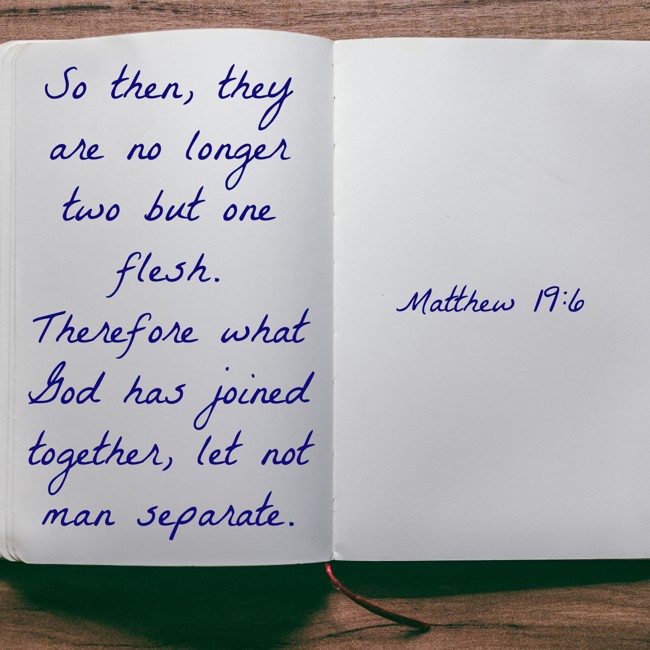 So then, they
are no longer
two but one
flesh.
Therefore what
God has joined
together, let not
man separate.
Matthew 19:6